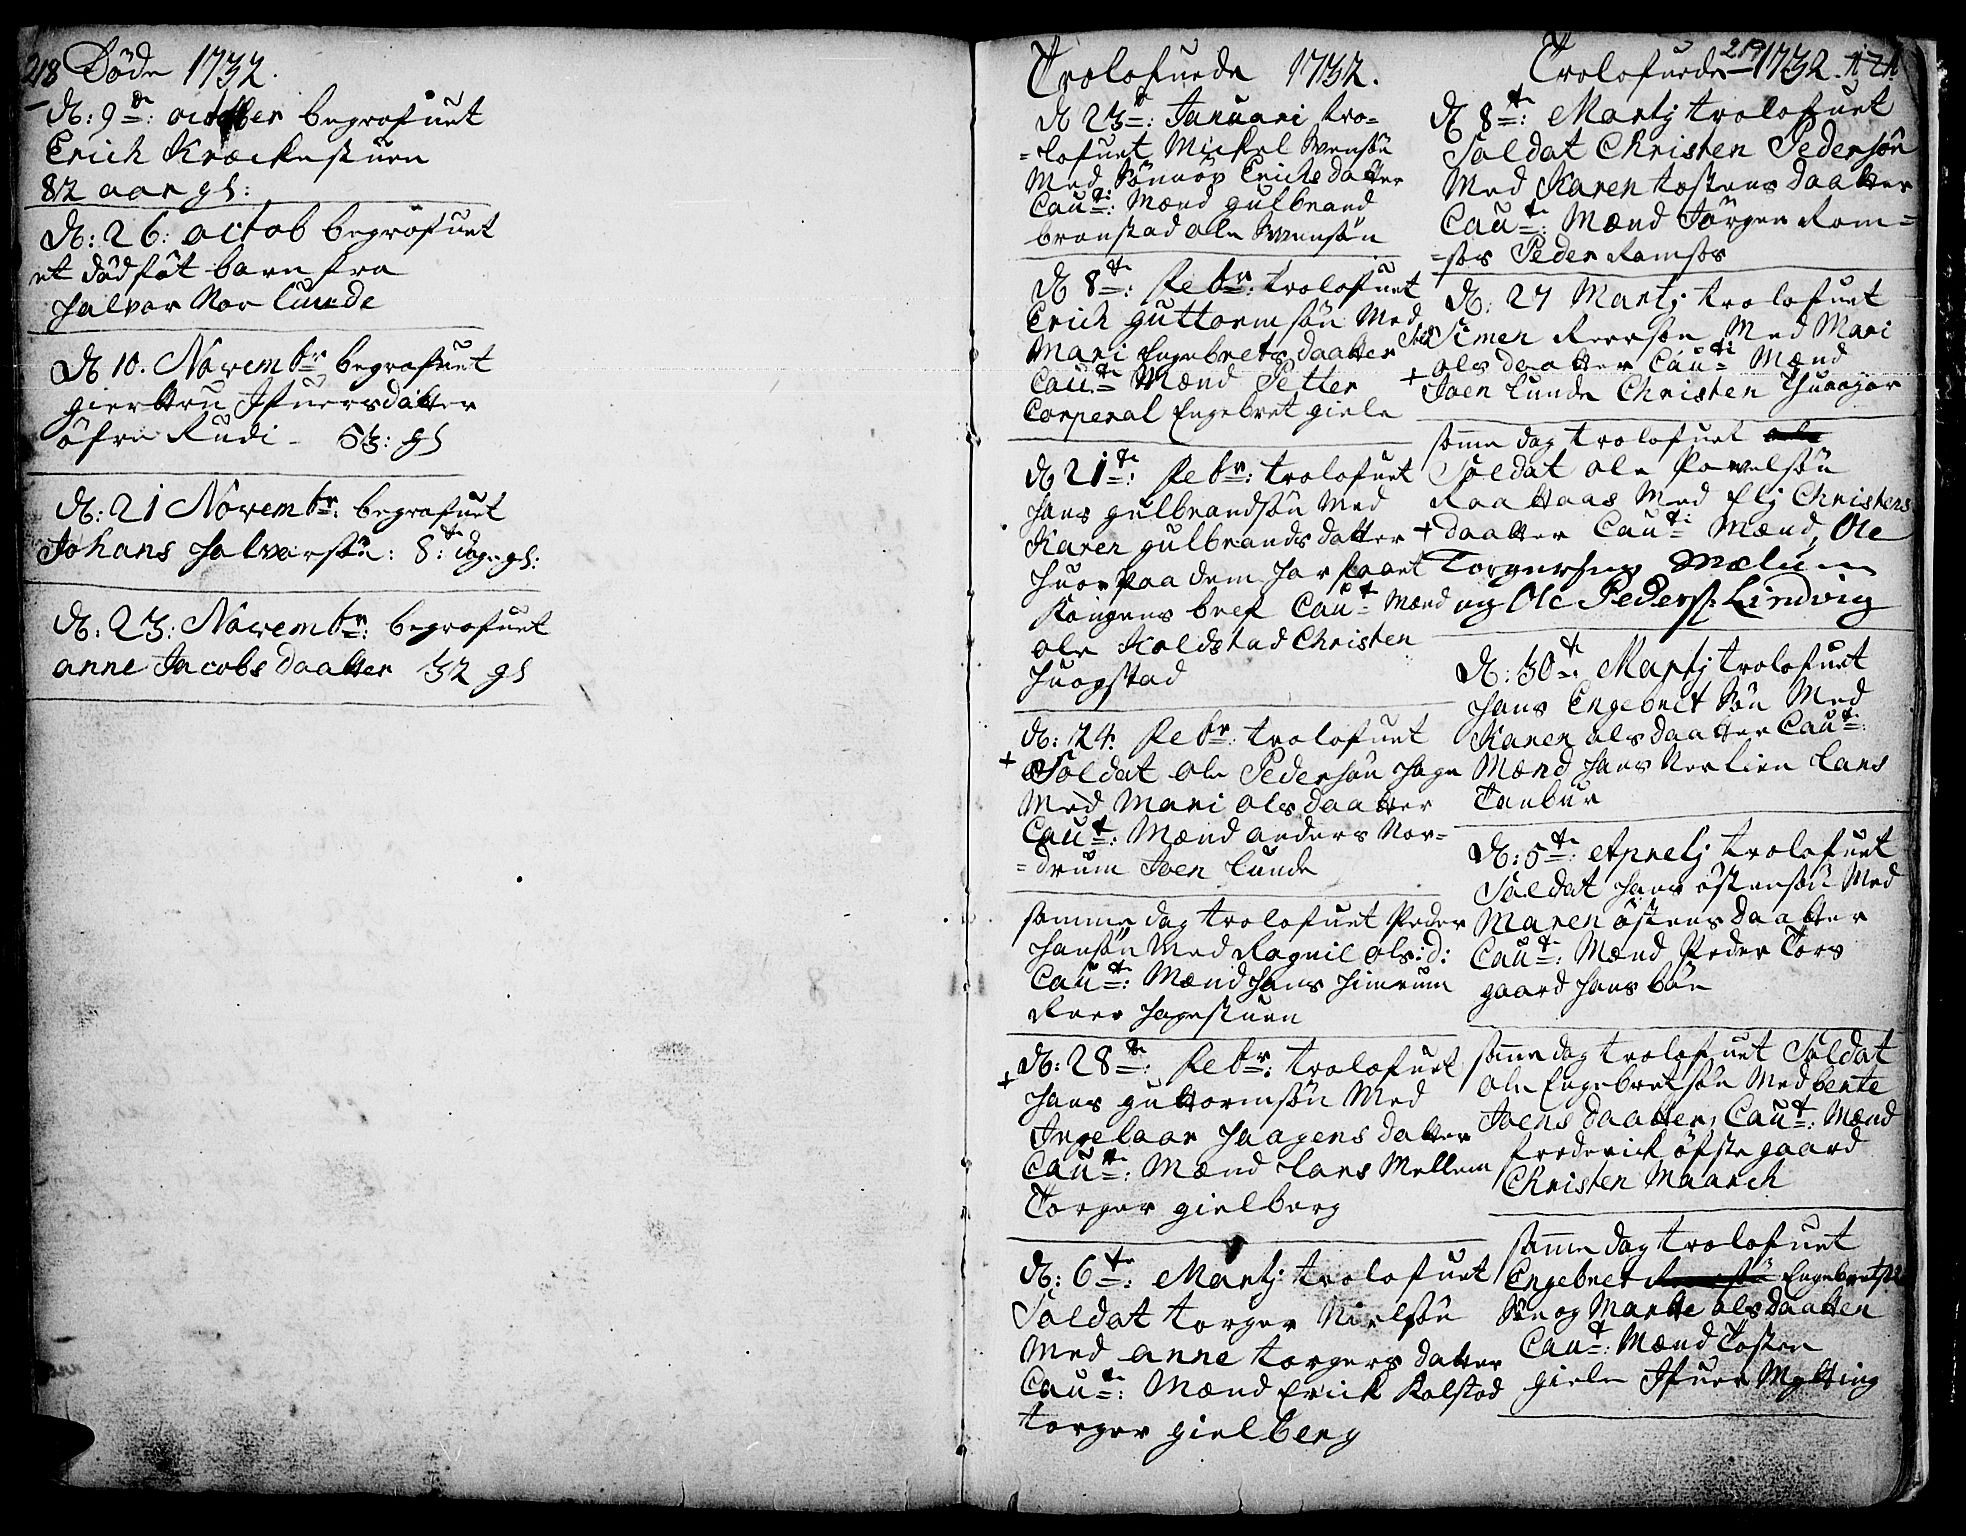 218 Döde 1732.
D: 9de: october begrafuet
Erich Kræckestuen
82 aar gl:
D: 26: octob begrafuet
et dödföt barn fra
Halvor Nor Lunde
D 10. Novembr begrafuet
giertru Ifuersdatter
öfre Rudi - 53: gl
D: 21 Novembr: begrafuet
Johans Halvorsön: 8: dag: gl:
D: 23: Novembr: begrafuet
anne Jacobs daatter 32 gl
Trolofuede 1732.
D 23de: Januari tro-
=lofuet Mickel Svensön
Med Sönnöv Erichs datter
Caute: Mænd gulbrand
bronstad ole Svensön
D 8de: Febr: trolofuet
Erich guttormsön Med
Mari Engebrets daatter
Caute Mænd Petter
Corperal Engebret giele
D 21de: Febr: trolofuet
Hans gulbrandsön Med
Karen gulbrands datter
Huor paa dem har faaet
Kongens bref Caut Mænd
ole Kaldstad Christen
Huogstad
D: 24. Febr: trolofuet
+ Soldat ole Pedersön Hage
Med Mari ols daatter
Caut: Mænd anders Nor=
=drum Joen Lunde
samme dag trolofuet Peder
Hansön Med Ragnil ols: d:
Caute: Mænd Hans Himrum
Roer Hagestuen
+ D: 28de: Febr: trolofuet
Hans guttormsön Med
Ingelaar Haagens datter
Caute: Mænd Lars Mellem
Torger gielberg
D: 6te: Martj trolofuet
Soldat torger Nielsön
Med anne torgers datter
Caute: Mænd Erick Kolstad
torger gielberg
Trolofuede 219 1732.
D 8te: Martj trolofuet
Soldat Christen Pedersön
Med Karen tostens daatter
Caute: Mænd Jörgen Rom=
=sos Peder Romsos
D: 27 Martj trolofuet
Simen Roersön Med Mari
+ ols daatter Caute Mænd
Joen Lunde Christen
samme dag trolofuet
Soldat ole Povelsön
Med Elj Christens
+ daatter Caute Mænd, Ole
Torgersen Melum
og Ole Peders: Lindvig
D: 30te: Martj trolofuet
Hans Engebret Sön Med
Karen ols daatter Caute:
Mænd Hans Norlien Lars
Tanbur
D: 5te: Aprelj trolofuet
Soldat Hans östensön Med
Maren östens daatter
Caute: Mænd Peder Tors
gaard Hans böe
samme dag trolofuet Soldat
ole Engebretsön Med bente
Joens daatter, Caute: Mænd
frederick öfste gaard
Christen Maarch
samme dag trolofuet
Engebret Engebret
Sön og Marthe ols daatter
Caute: Mænd Tosten
giele Ifuer Mytting